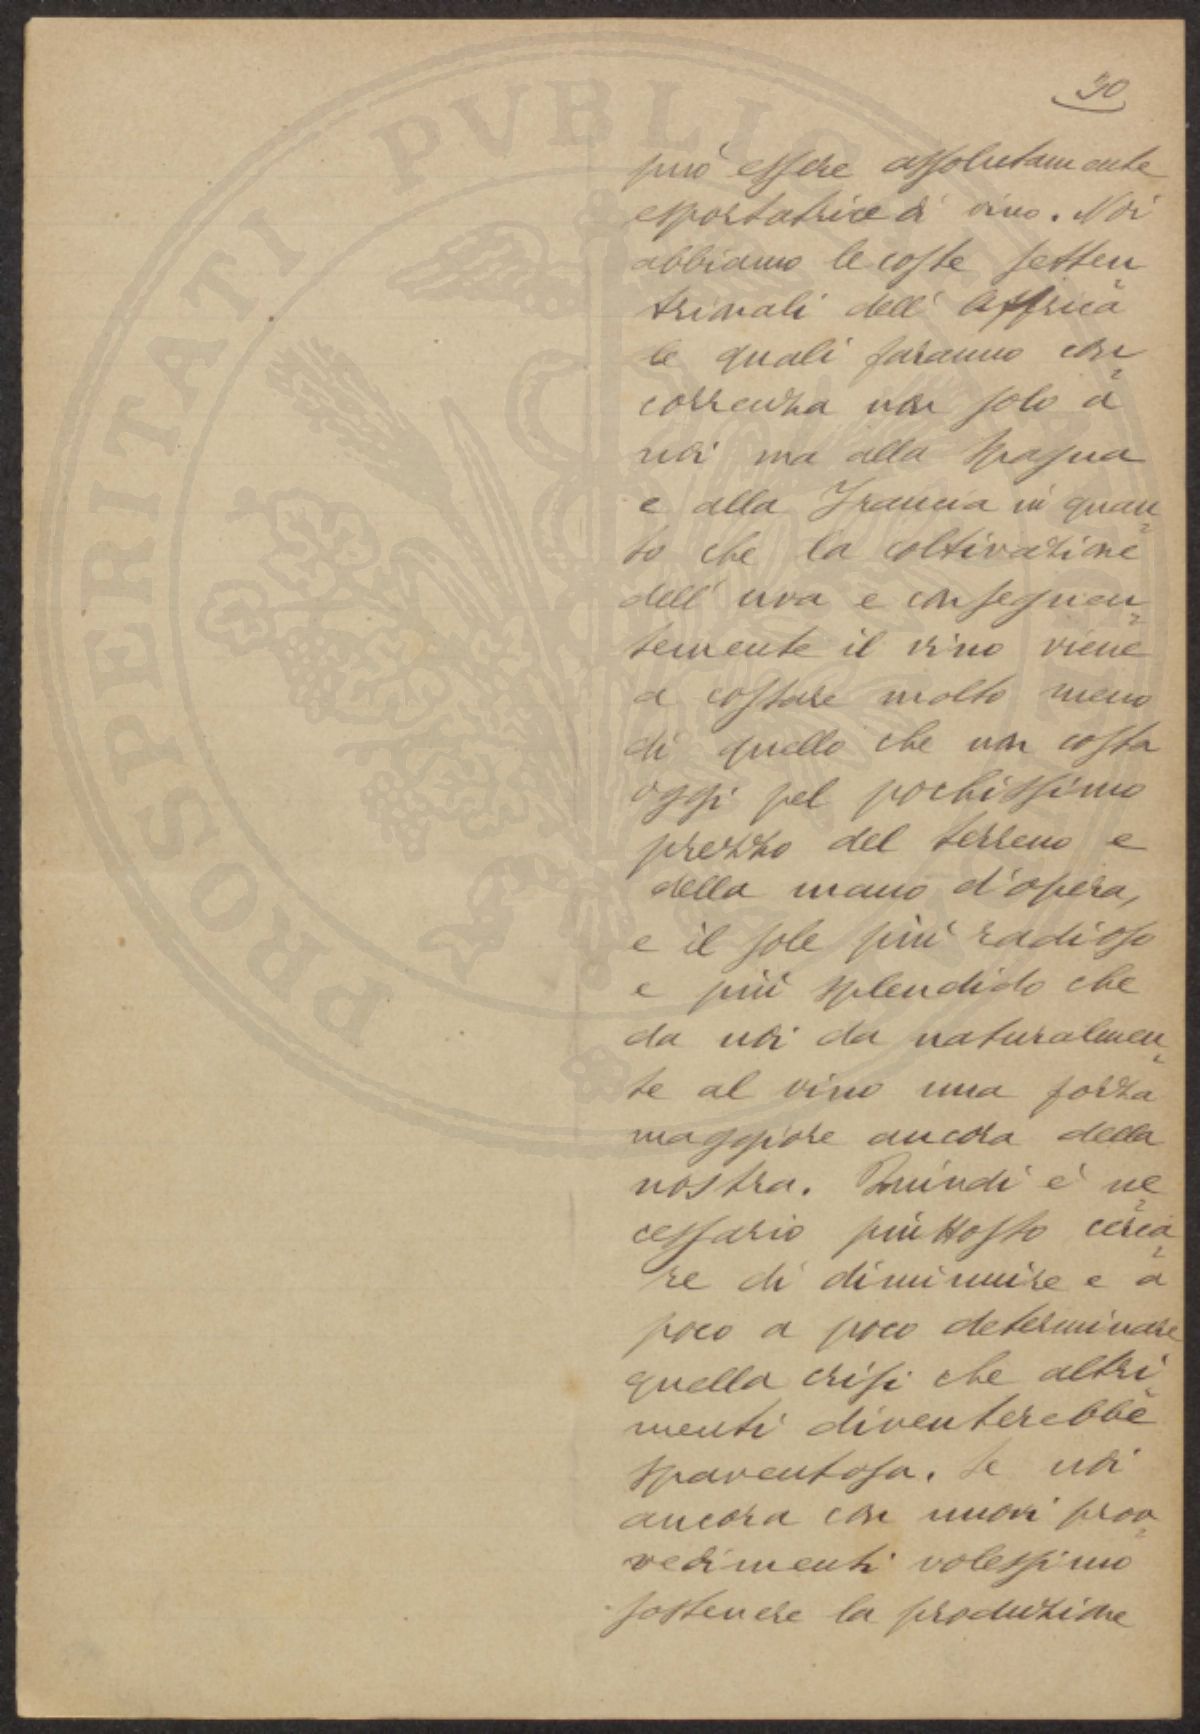 30
può essere assolutamente
esportatrice di vino. Noi
abbiamo le coste setten
trionali dell'Affrica
le quali faranno con
correnza non solo a
noi ma alla Spagna
e alla Francia in quan
to che la coltivazione
dell'uva e conseguen
temente il vino viene
a costare molto meno
di quello che non costa
oggi pel pochissimo
prezzo del terreno e
della mano d'opera,
e il sole più radioso
e più splendido che
da noi da naturalmen
te al vino una forza
maggiore ancora della
nostra. Quindi è ne
cessario piuttosto cerca
re di diminuire e a
poco a poco determinare
quella crisi che altri
menti diventerebbe
spaventosa. Se noi
ancora con nuovi prov
vedimenti volessimo
sostenere la produzione
PROSPERITATI PVBLIC